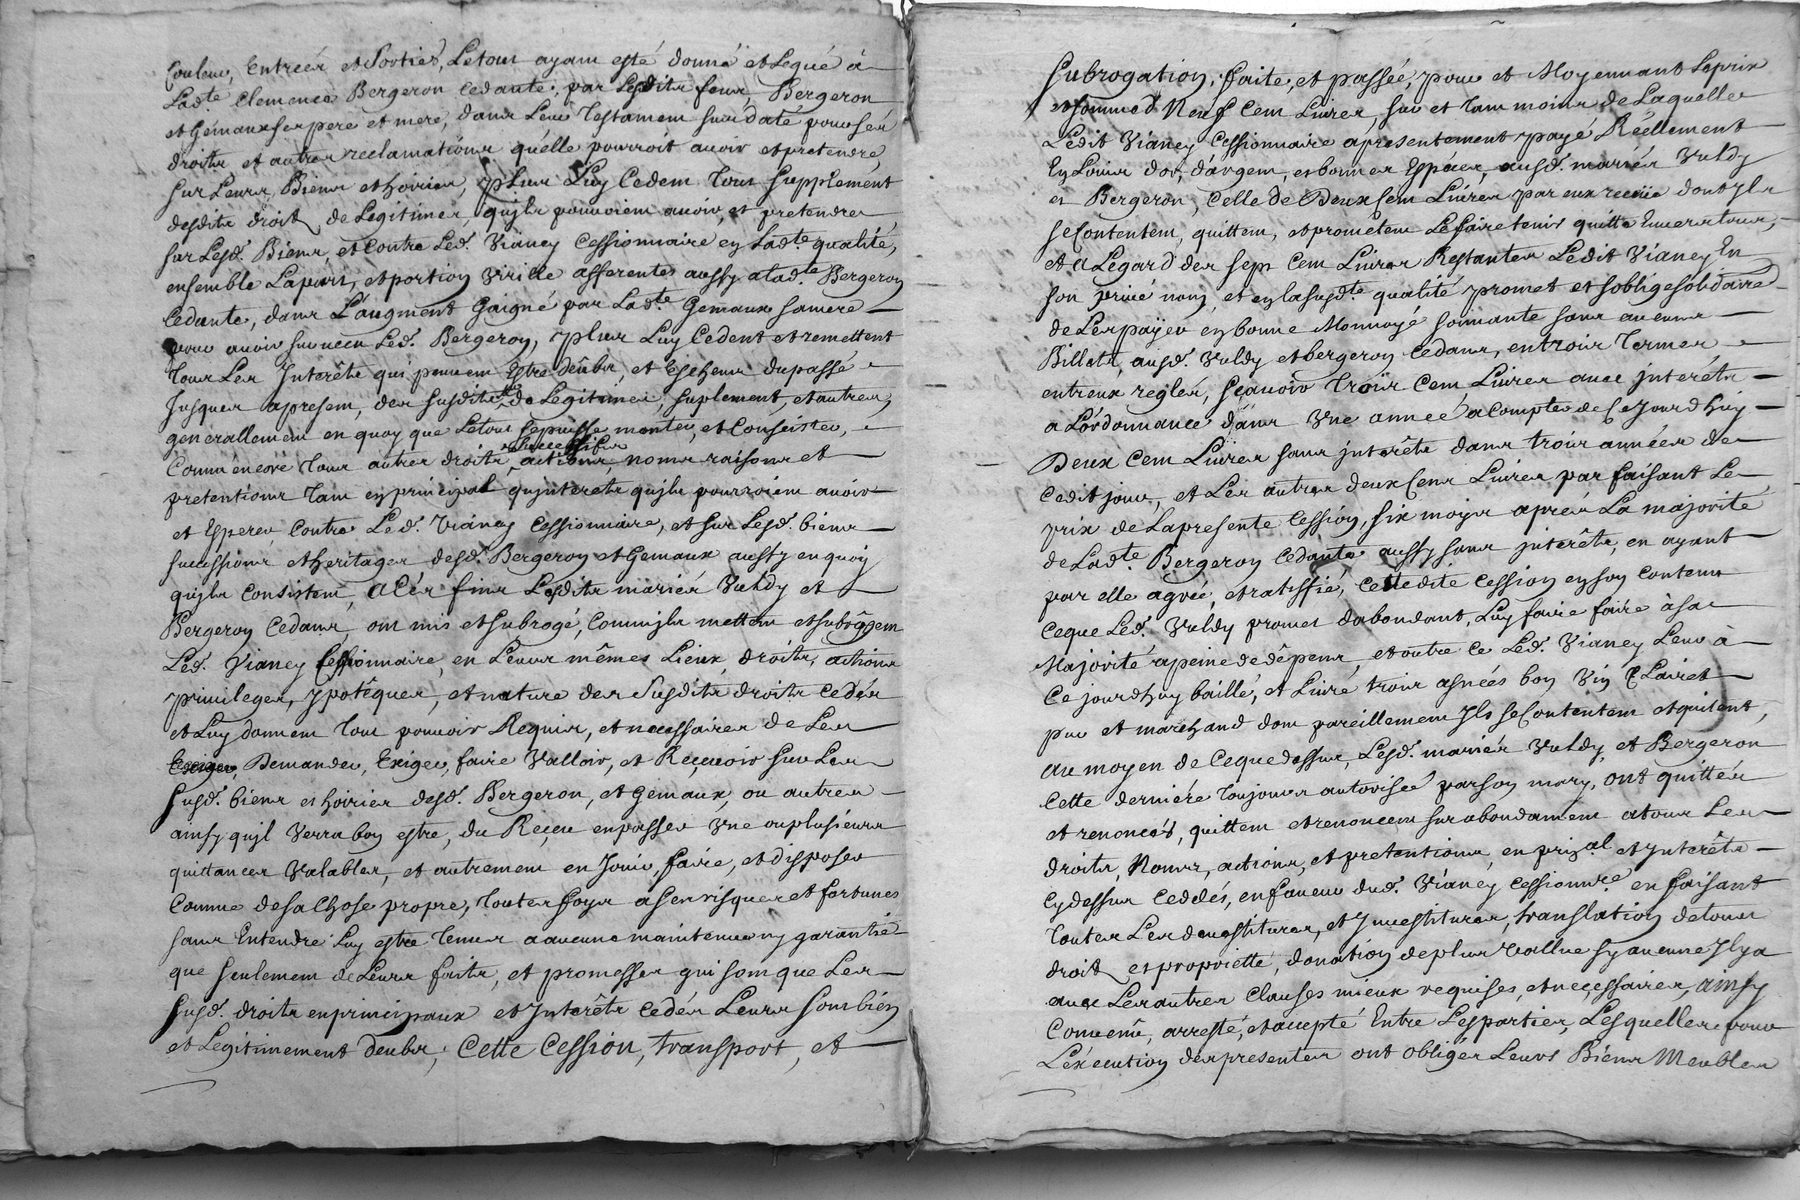 Couleur, Entrées et Sorties, Letout ayant esté donné et Legué à
Ladte Clemence Bergeron Cedante, par Lesdits feus Bergeron
et Gémaux ses pere et mere, dans Leur Testament sus daté pour ses
droits et autres reclamations qu'elle pourroit avoir et pretendre
sur Leurs Biens et hoiries, plus Luy Cedent tout supplément
desdits droits de Legitimes qu'jls pouvoient avoir et pretendre
sur Lesd. Biens, et Contre Led. Vianey Cessionnaire en Ladte qualité,
ensemble Lapart, et portion Virille afferentes aussy aladte Bergeron
Cedante, dans L'augment Gaigné par Ladte Gemaux samere
pour avoir survecu Led. Bergeron, plus Luy Cedent et remettent
tous Les Interêts qui peuvent Estre deübs, et Escheus dupassé
Jusques apresent, des susdits de Légitimes, suplement, et autres,
generallement en quoy que Letout sepuisse monter, et Consister,
Comm'encore tous autres droits, actions, noms raisons et
pretentions tant en principal qu'jnterets qu'jls pourroient avoir
et Esperer Contre Led. Vianey Cessionnaire, et sur Lesd. biens
successions et heritages desd. Bergeron et Gemaux aussy en quoy
qu'jls Consistent, a Cés fins Lesdits mariés Vuldy et
Bergeron Cedans, ont mis et subrogé, Comm'jls mettent et subrogent
Led. Vianey Cessionnaire, en Leurs mêmes Lieux, droits, actions
privileges, ypotêques, et nature des Susdits droits Cedés
et Luy donnent tout pouvoir Requis, et necessaires de Les
Exiger, Demander, Exiger, faire Valloir, et Reçevoir sur Les
susd. biens et hoiries desd. Bergeron, et Gemaux, ou autres
ainsy qu'jl verra bon estre, du Reçeu en passer Une ou plusieurs
quittances Valables, et autrement en Jouir, faire, et disposer
Comme de sa Chose propre, toutesfoys a ses risques et fortunes
sans Entendre Luy estre tenus a aucune maintenue ny garantie
que seulement de Leurs faits, et promesses qui sont que Les
susd. droits en principaux et Jnterêts cedés Leurs sont bien
et Legitimement deubs; Cette Cession, transport, et
subrogation, faite, et passée, pour et Moyennant Leprix
et somme de Neuf Cent Livres, sur et tant moins de Laquelle
Ledit Vianey Cessionnaire àpresentement payé Réellement
En Loüis d'or, d'argent, et bonnes Espéces, ausd. mariés Vuldy
et Bergeron, Celle de Deux Cent Livres par eux receüe dont Jls
se Contentent, quittent, et prometent Le faire tenir quitte Envers tous,
et a L'egard des sept Cent Livres Restantes Ledit Vianey En
son privé nom, et en la susdte qualité promet et s'oblige solidaire
de Les payer en bonne Monnoye sonnante sans aucuns
Billets, ausd. Vuldy et bergeron Cedans, en trois Termes
entreux reglés, sçauoir Trois Cent Livres avec jnterêts
a L'ordonnance dans Une année a Compter de Cejourd'huy
Deux Cent Livres sans jnterêts dans trois années de
Cedit jour, et Les autres deux Cens Livres par faisant Le
prix de Lapresente Cession, six moys aprés La majorité
de Ladte Bergeron Cedante aussy sans jnterêts, en ayant
par elle agréé, et ratiffié, Cettedite Cession en son Contenu
Ceque Led. Vuldy promet d'abondant, Luy faire faire à sa
Majorité apeine de dêpens, et outre Ce Led. Vianey Leur à
Ce jourd'huy baillé, et Livré trois asnées bon Vin Clairet
pur et marchand dont pareillement Jls se Contentent et quitent,
Au moyen de Ceque dessus, Lesd. mariés Vuldy, et Bergeron
Cette derniére toujours autorisée par son mary, ont quittés
et renoncés, quittent et renoncent surabondament a tous Les
droits, Noms, actions, et pretentions, en prizal et Jnterêts
Cydessus Ceddés, en faveur dud. Vianey Cessionnre en faisant
toutes Les devestitures, et Jnvestitures, translation de tous
droits et proprietté, donation de plus Vallue sy aucune Jl y a
avec Les autres Clauses mieux requises, et necessaires, ainsy
Convenü, arresté, et accepté Entre Lesparties, Lesquelles pour
L'éxecution des presentes ont obligés Leurs Biéns Meubles